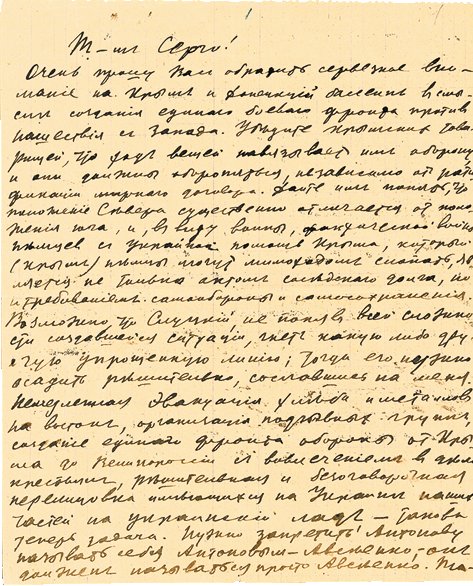 Т-щ Серго!
Очень прошу Вас обратить серьезное вни-
мание на Крым и Донецкий бассейн в смы-
сле создания единого боевого фронта против
нашествия с Запада. Убедите крымских това-
рищей, что ход вещей навязывает им оборону
и они должны обороняться, независимо от рати-
фикации мирного договора. Дайте им понять, что
положение Севера существенно отличается от поло-
жения юга, и, в виду войны, фактической войны
немцев с Украиной помощь Крыма, который
(Крым) немцы могут мимоходом слопать, яв-
ляется не только актом соседского долга, но
и требованием самообороны и самосохранения.
Возможно, что Слуцкий, не поняв всей сложно-
сти создавшейся ситуации, гнет какую либо дру-
гую упрощенную линию; тогда его нужно
осадить решительно, сославшись на меня.
Немедленная эвакуация хлеба и металлов
на восток, организация подрывных групп,
создание единого фронта обороны от Кры-
ма до Великороссии с вовлечением в дело
крестьян, решительная и безоговорочная
перелицовка имеющихся на Украине наших
частей на украинский лад – такова
теперь задача. Нужно запретить Антонову
называть себя Антоновым-Овсеенко, – он
должен называться просто Овсеенко.